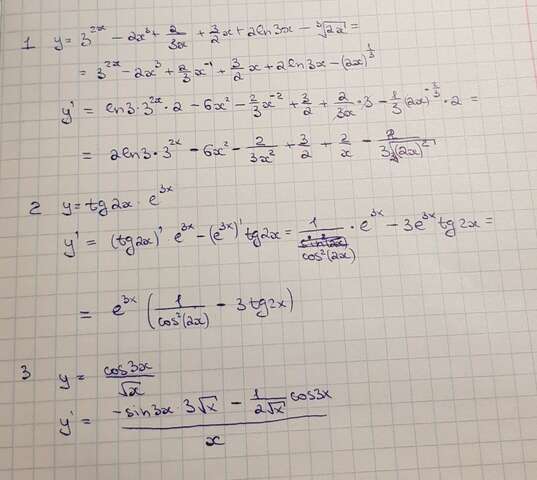 1 y = 3^{2x} - 2x^3 + 2/(3x) + 3/2 x + 2 ln 3x - ∛(2x) =
= 3^{2x} - 2x^3 + 2/3 x^{-1} + 3/2 x + 2 ln 3x - (2x)^{1/3}
y' = ln 3 · 3^{2x} · 2 - 6x^2 - 2/3 x^{-2} + 3/2 + 2/(3x) · 3 - 1/3 (2x)^{-2/3} · 2 =
= 2 ln 3 · 3^{2x} - 6x^2 - 2/(3x^2) + 3/2 + 2/x - 2/(3∛((2x)^2))
2 y = tg 2x · e^{3x}
y' = (tg 2x)' e^{3x} - (e^{3x})' tg 2x = 1/(cos^2(2x)) · e^{3x} - 3e^{3x} tg 2x =
= e^{3x} (1/(cos^2(2x)) - 3 tg 2x)
3 y = cos 3x / √x
y' = (-sin 3x · 3√x - 1/(2√x) cos 3x) / x